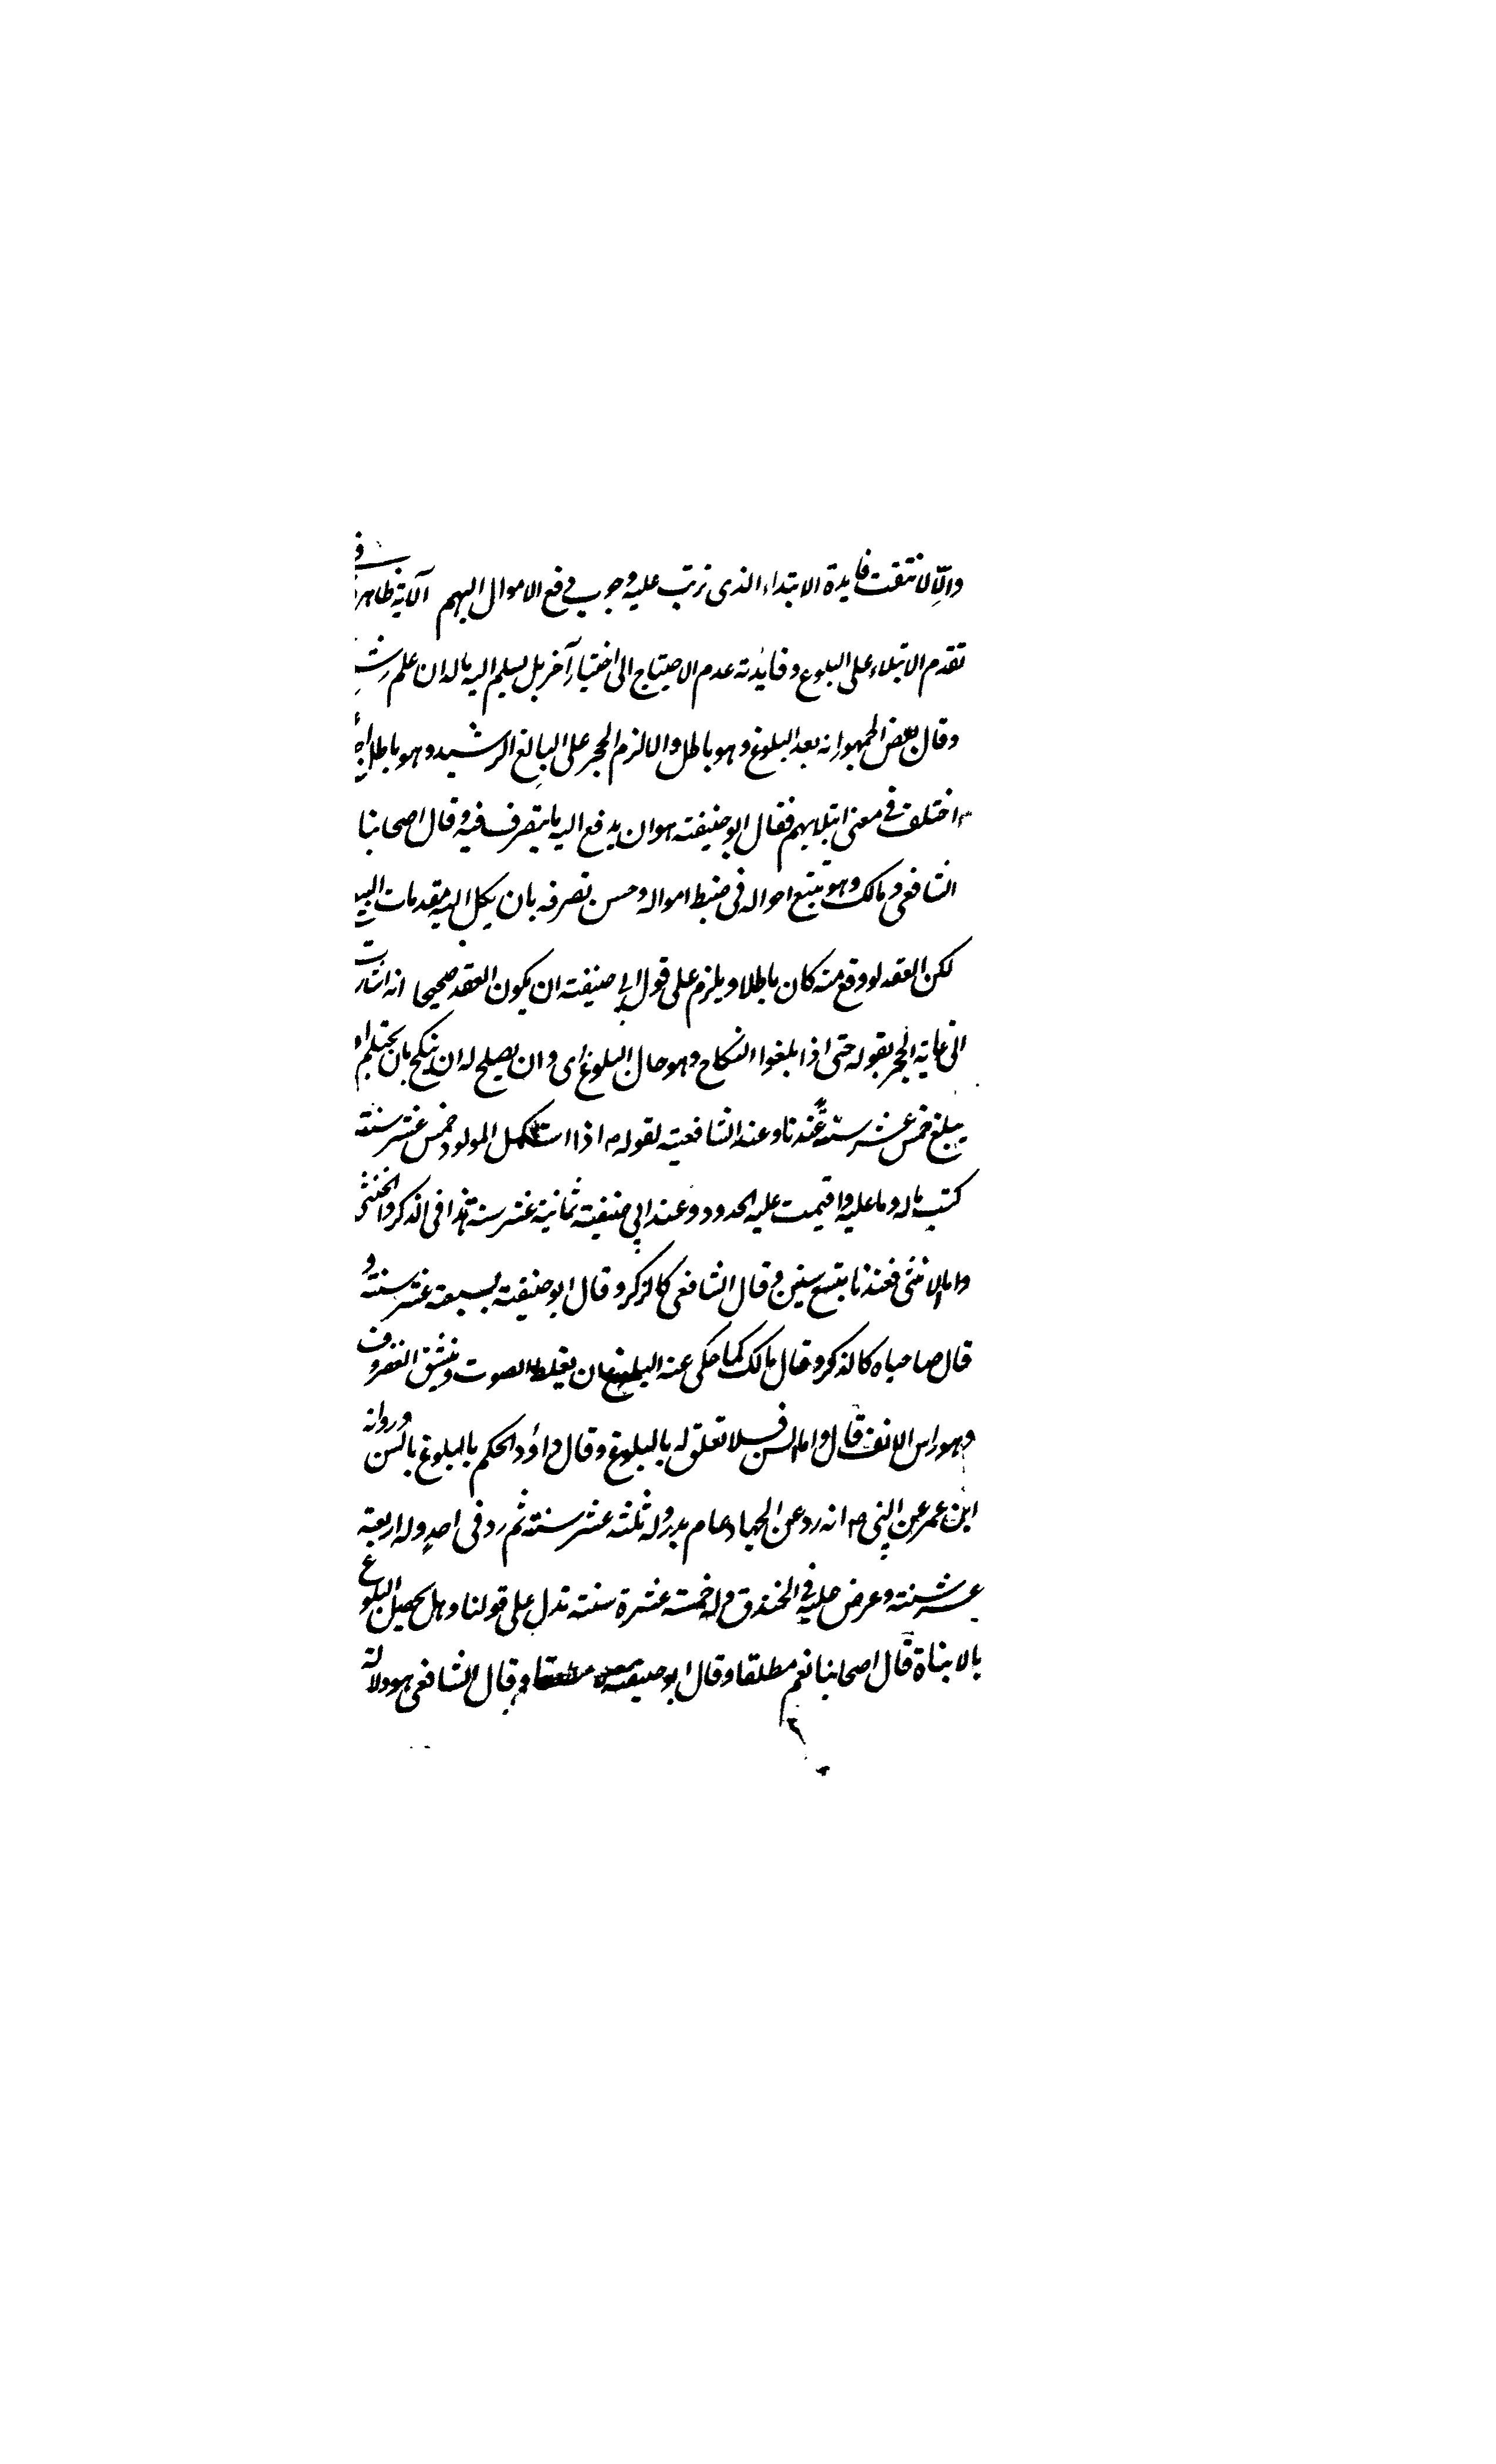 والّا لانتفت فايدة الابتداء الذى ترتب عليه وجوب دفع الاموال اليهم الآية ظاهرة فى
تقدم الابتلاء على البلوغ وفايدته عدم الاحتياج الى اختبار آخر بل يسلم اليه ماله ان علم رش
وقال بعض الجمهور انه بعد البلوغ وهو باطل والا لزم الحجر على البالغ الرشيد وهو باطل
اختلف فى معنى ابتلايهم فقال ابو حنيفته هو ان يدفع اليه ما يتصرف فيه وقال اصحابنا
الشافعى ومالك وهو تتبع احواله فى ضبط امواله وحسن تصرفه بان يكل اليه مقدمات البيع
لكن العقد لو وقع منه كان باطلا ويلزم على قول ابى حنيفته ان يكون العقد صحيحا انه اشارت
الى غاية الحجر بقوله حتى اذا بلغوا النكاح وهو حال البلوغ اى وان يصلح له ان ينكح بان يحتلم او
يبلغ خمس عشر سنة عندنا وعند الشافعية لقوله م اذا استكمل المولود خمس عشر سنة
كتب ماله وما عليه واقيمت عليه الحدود وعند ابى حنيفته ثمانية عشر سنة هذا فى الذكر والخنثى
واما الانثى فعندنا بتسع سنين وقال الشافعى كالذكر وقال ابو حنيفته بسبعة عشر سنة و
قال صاحباه كالذكر وقال مالك كما حكى عنه البلوغ ان يغلظ الصوت وينشق الغضروف
وهو راس الانف قال واما السن فلا تعلق له بالبلوغ وقال داؤد الحكم بالبلوغ بالسن ورواية
ابن عمر عن النبى م انه رد عن الجهاد عام بدر وله ثلثة عشر سنة ثم رد فى احد وله اربعة
عشر سنة وعرض عليه فى الخندق وله خمسة عشرة سنة تدل على قولنا وهل يحصل البلوغ
بالانبات قال اصحابنا نعم مطلقا وقال ابو حنيفته وقال الشافعى هو دلالة